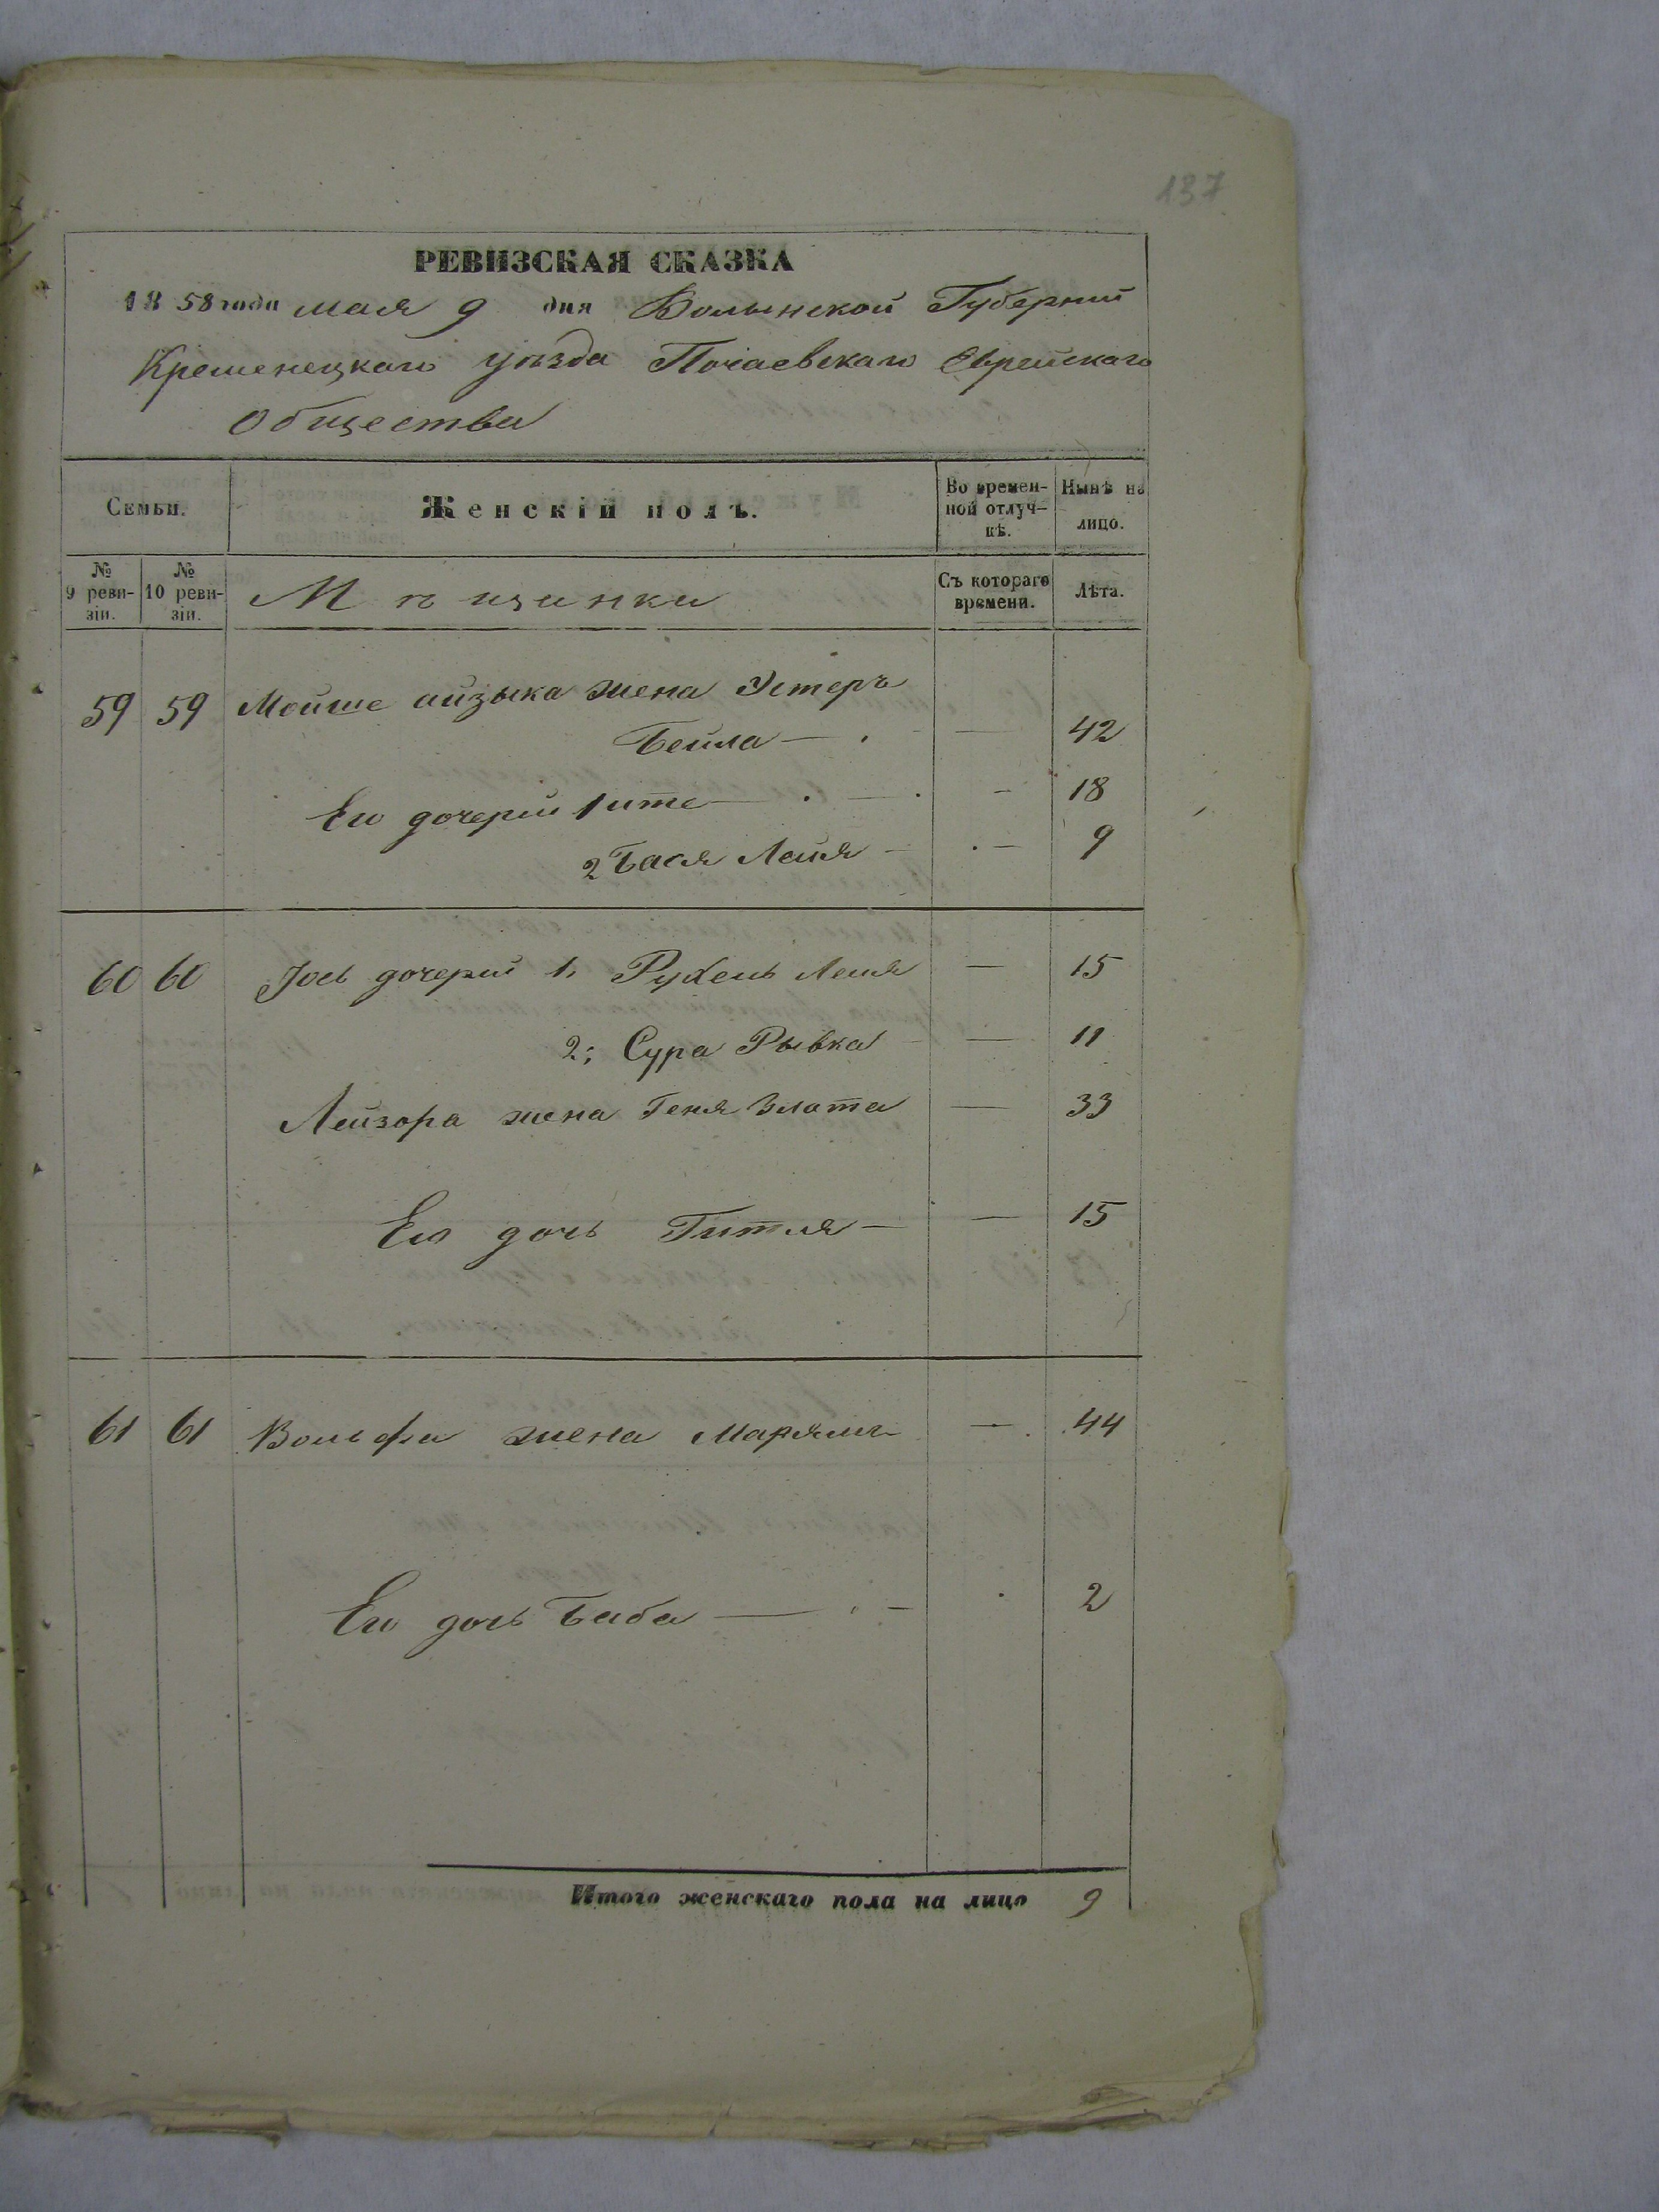 137
РЕВИЗСКАЯ СКАЗКА
1858 года мая 9 дня Волынской Губерніи
Кременецкаго уѣзда Почаевскаго Еврейскаго
Общества
Семьи. Женскій полъ. Во времен-ной отлуч-кѣ. Нынѣ на лицо.
№ 9 реви-зіи. № 10 реви-зіи. Мѣщанки Съ котораго времени. Лѣта.
59 59 Мойше айзыка жена Эстеръ
Бейла — — 42
Его дочерей 1 ите — — 18
2 Бася Лейя — — 9
60 60 Іось дочерей 1, Рухель Лейя — 15
2; Сура Рывка — 11
Лейзора жена Геня Злота — 33
Его дочь Гитля — — 15
61 61 Вольфа жена Марямъ — 44
Его дочь Баба — — 2
Итого женскаго пола на лицо 9